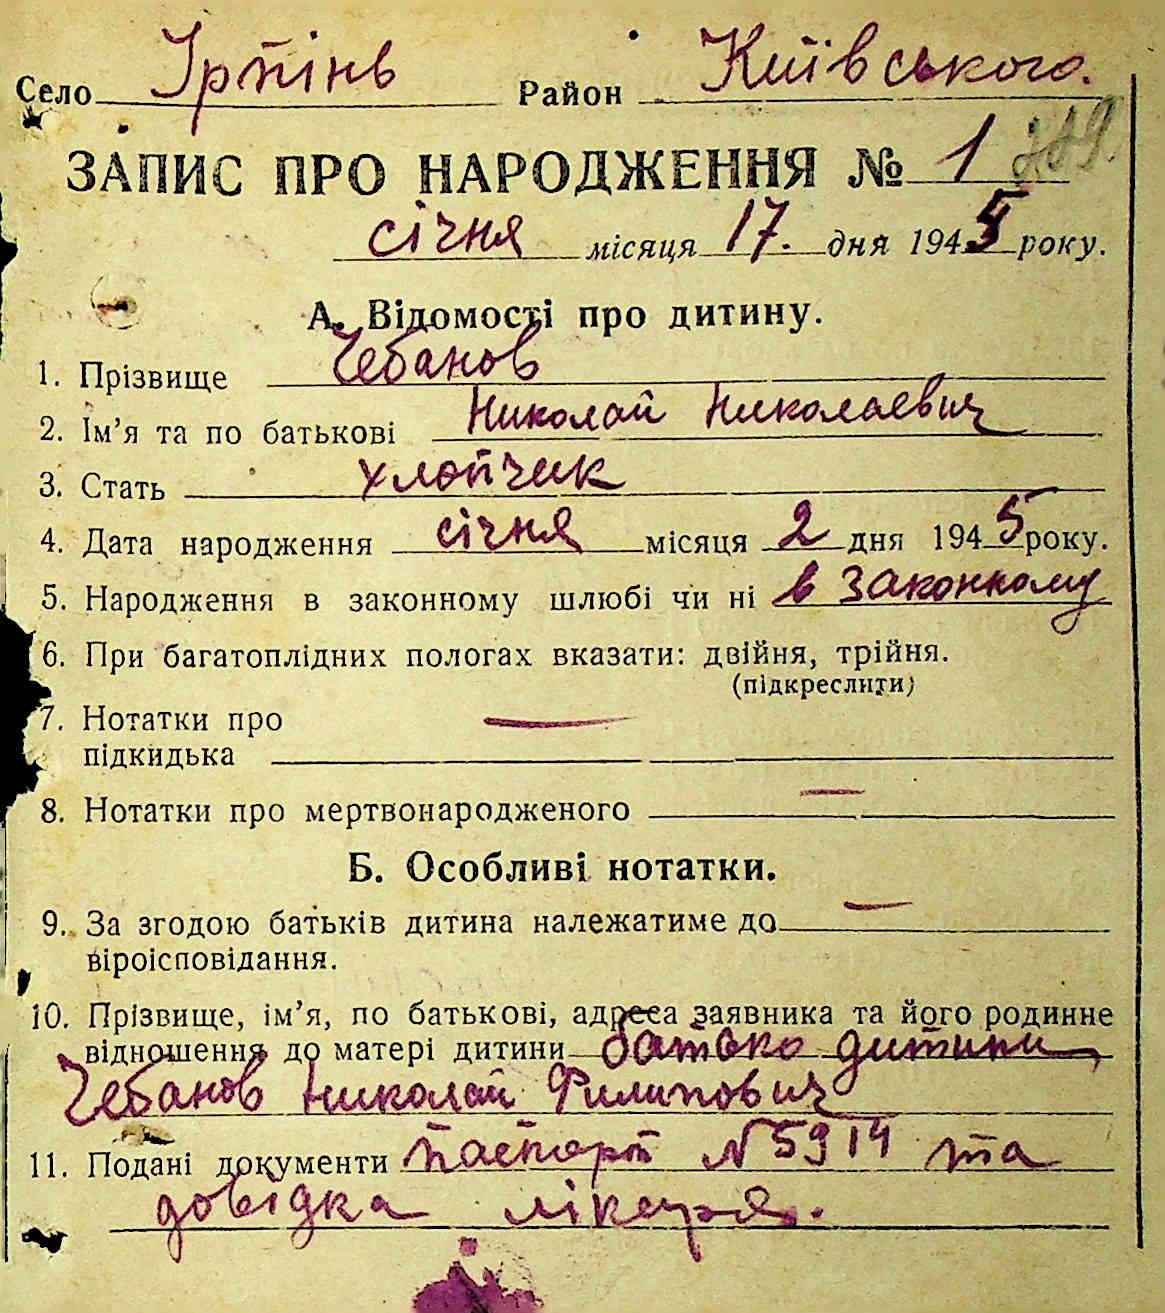 Село Ірпінь Район Київського.
ЗАПИС ПРО НАРОДЖЕННЯ № 1
січня місяця 17. дня 1945 року.
А. Відомості про дитину.
1. Прізвище Чебанов
2. Ім'я та по батькові Николай Николаевич
3. Стать хлопчик
4. Дата народження січня місяця 2 дня 1945 року.
5. Народження в законному шлюбі чи ні в законному
6. При багатоплідних пологах вказати: двійня, трійня.
(підкреслити)
7. Нотатки про —
підкидька
8. Нотатки про мертвонародженого —
Б. Особливі нотатки.
9. За згодою батьків дитина належатиме до —
віроісповідання.
10. Прізвище, ім'я, по батькові, адреса заявника та його родинне
відношення до матері дитини батько дитини,
Чебанов Николай Филипович
11. Подані документи паспорт № 5914 та
довідка лікаря.